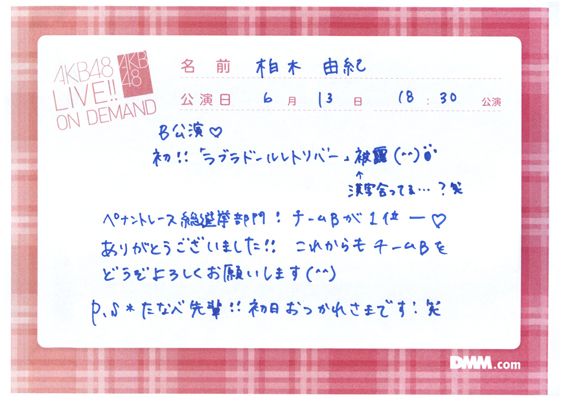 AKB48
LIVE!!
ON DEMAND
AKB
48
名前 柏木 由紀
公演日 6月 13日 18:30 公演
B公演♡
初!!「ラブラドールレトリバー」被露(^^)
↑
漢字合ってる…?笑
ペナントレース総選挙部門! チームBが1位ー♡
ありがとうございました!! これからもチームBを
どうぞよろしくお願いします(^^)
P.S*たなべ先輩!!初日おつかれさまです!笑
DMM.com